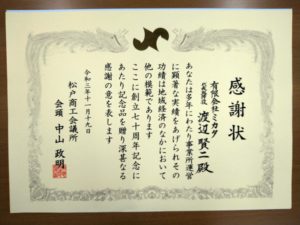 感謝状
有限会社ミカタ
代表取締役
渡辺賢二殿
あなたは多年にわたり事業所運営
に顕著な実績をあげられその
功績は地域経済のなかにおいて
他の模範であります
ここに創立七十周年記念に
あたり記念品を贈り深甚なる
感謝の意を表します
令和三年十一月十九日
松戸商工会議所
会頭 中山政明